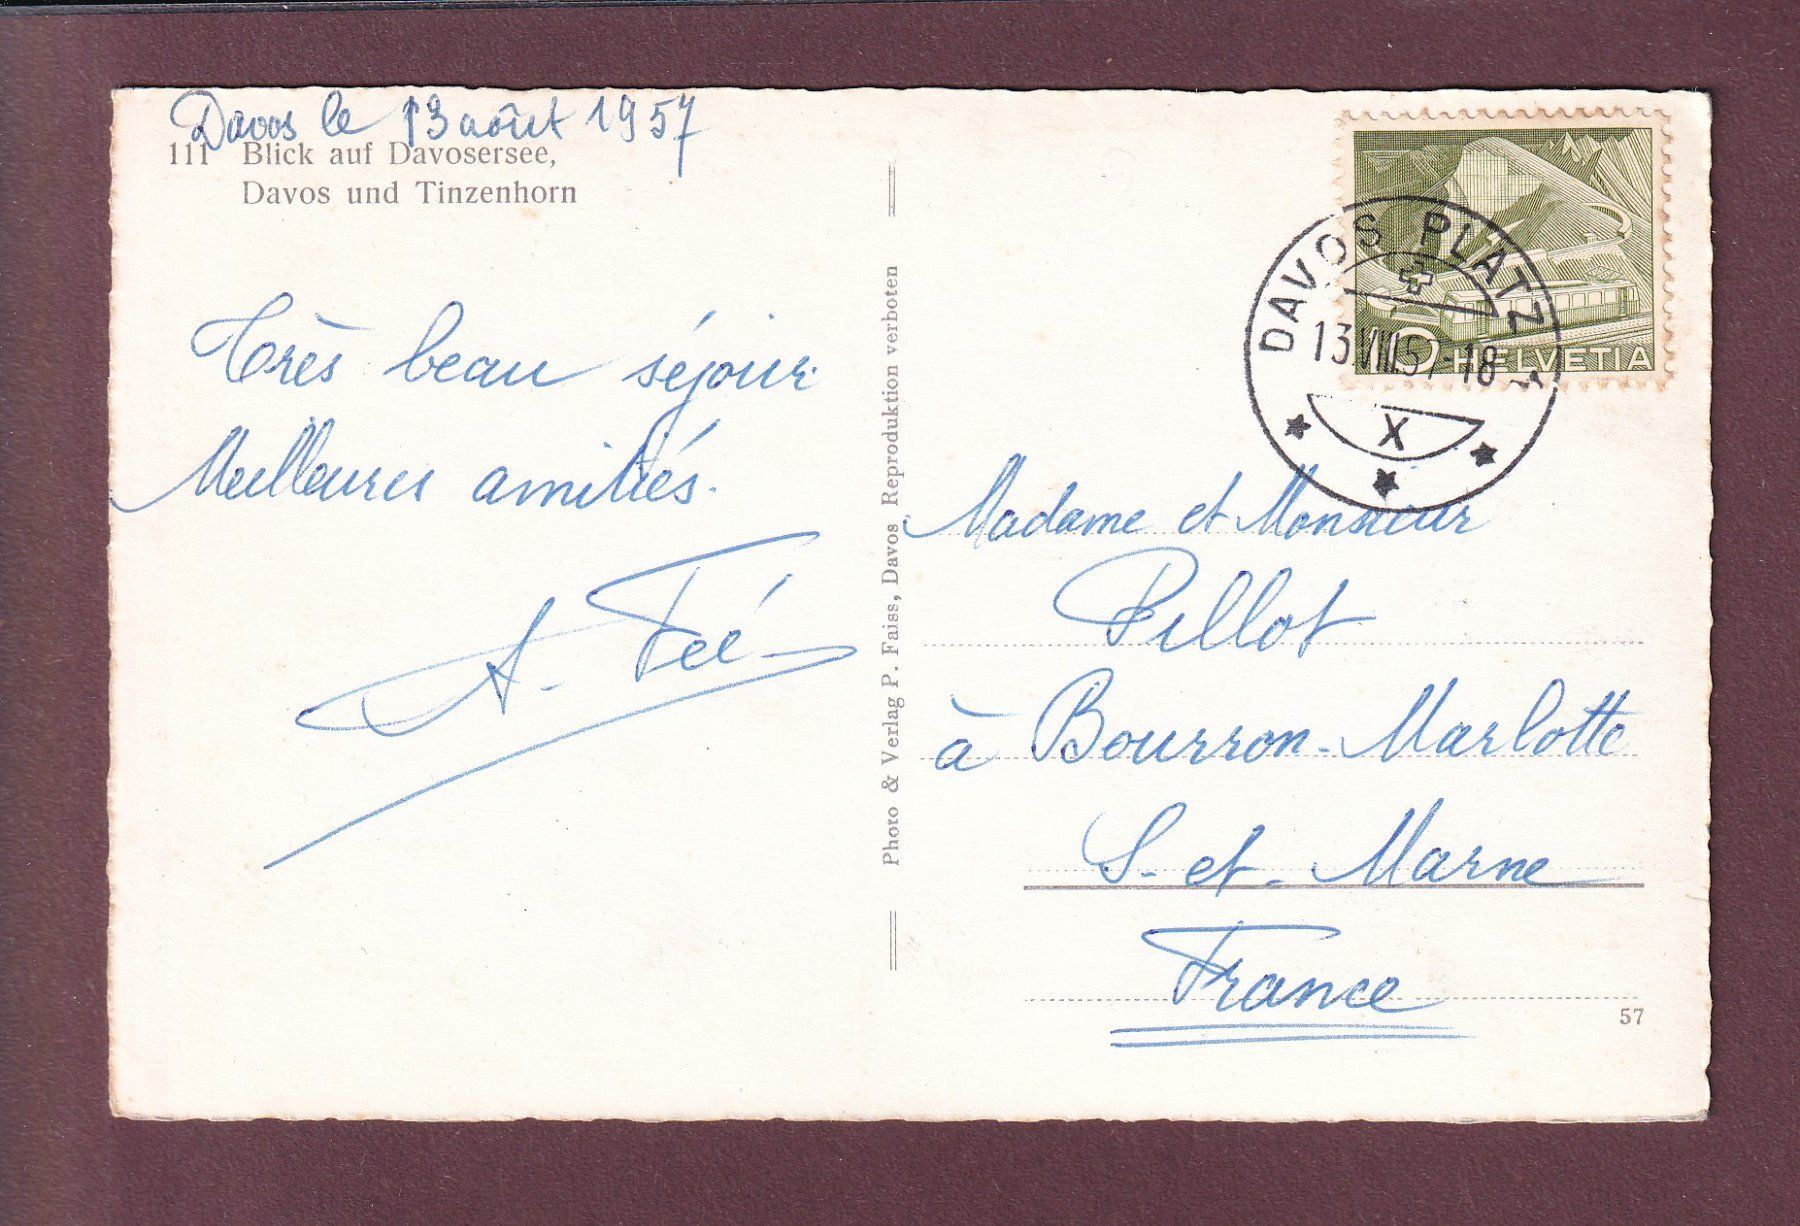 Davos le 13 août 1957
111 Blick auf Davosersee,
Davos und Tinzenhorn
Très beau séjour.
Meilleures amitiés.
A. Feé
Photo & Verlag P. Faiss, Davos Reproduktion verboten
HELVETIA
DAVOS PLATZ
13.VIII.57-18
X
Madame et Monsieur
Pillot
à Bourron-Marlotte
S.-et-Marne
France
57